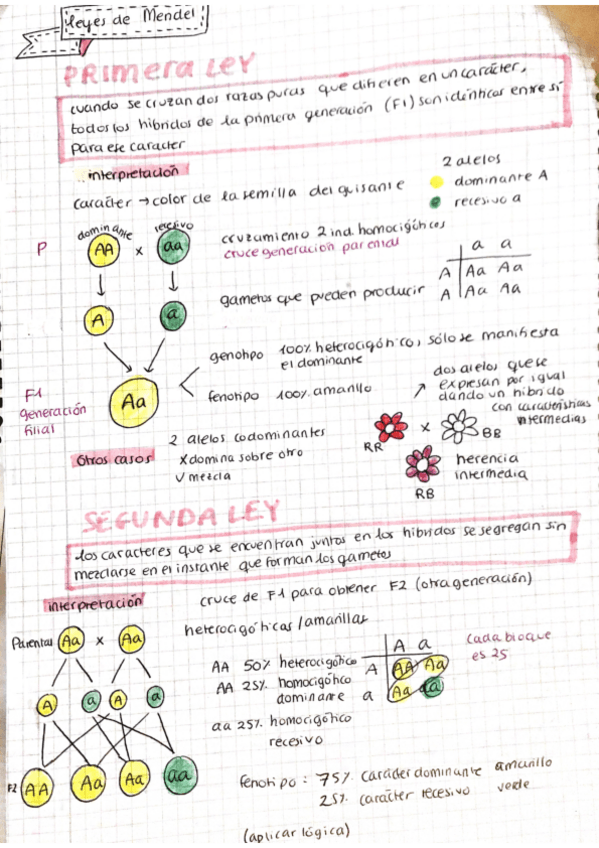 Leyes de Mendel
PRIMERA LEY
cuando se cruzan dos razas puras que difieren en un carácter,
todos los híbridos de la primera generación (F1) son idénticas entre sí
para ese caracter
interpretación
carácter → color de la semilla del guisante
2 alelos
dominante A
recesivo a
P
dominante
recesivo
AA x aa
cruzamiento 2 ind. homocigóticos
cruce generación parental
a a
A Aa Aa
A Aa Aa
A a
gametos que pueden producir
Aa
F1
generación
filial
genotipo 100% heterocigótico, sólo se manifiesta
el dominante
fenotipo 100% amarillo
dos alelos que se
expresan por igual
dando un híbrido
con características
intermedias
Otros casos
2 alelos codominantes
X domina sobre otro
V mezcla
RR x BB
RB
herencia
intermedia
SEGUNDA LEY
los caracteres que se encuentran juntos en los híbridos se segregan sin
mezclarse en el instante que forman los gametos
interpretación
cruce de F1 para obtener F2 (otra generación)
heterocigóticas / amarillas
Parental Aa x Aa
A a A a
F2 AA Aa Aa aa
AA 50% heterocigótico
AA 25% homocigótico
dominante
aa 25% homocigótico
recesivo
A a
A AA Aa
a Aa aa
cada bloque
es 25
fenotipo: 75% carácter dominante amarillo
25% carácter recesivo verde
(aplicar lógica)